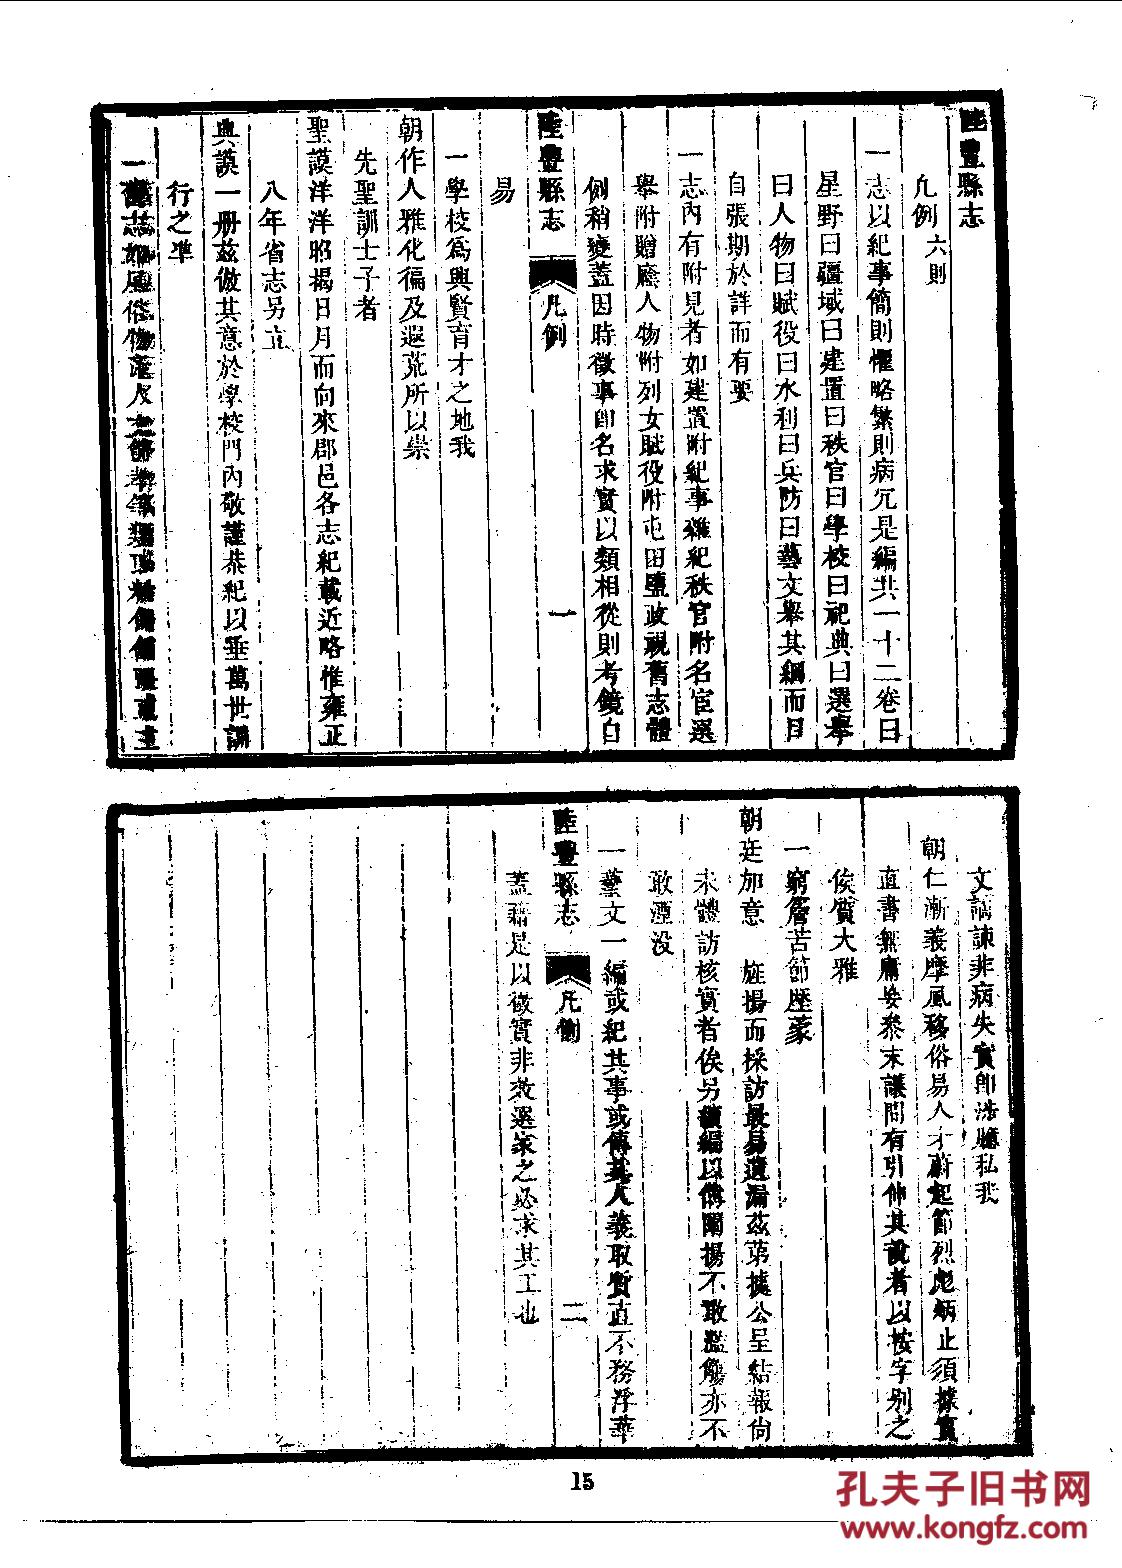 陸豐縣志
凡例六則
一志以紀事簡則懼略繁則病冗是編共一十二卷曰
星野曰疆域曰建置曰秩官曰學校曰祀典曰選舉
曰人物曰賦役曰水利曰兵防曰藝文舉其綱而目
自張期於詳而有要
一志內有附見者如建置附紀事雜紀秩官附名宦選
舉附贈廕人物附列女賦役附屯田鹽政視舊志體
例稍變蓋因時徵事即名求實以類相從則考鏡自
陸豐縣志 凡例 一
易
一學校爲興賢育才之地我
朝作人雅化徧及遐荒所以崇
先聖訓士子者
聖謨洋洋昭揭日月而向來郡邑各志紀載近略惟雍正
八年省志另立
典謨一册茲倣其意於學校門內敬謹恭紀以垂萬世訓
行之準
一舊志如風俗物產人文節孝等類或
文譎諫非病失實即涉臆私我
朝仁漸義摩風移俗易人才蔚起節烈彪炳止須據實
直書無庸妄參末議間有引伸其說者以按字別之
俟質大雅
一窮簷苦節歷蒙
朝廷加意旌揚而採訪最易遺漏茲第據公呈結報尙
未體訪核實者俟另續編以備闡揚不敢濫觴亦不
敢湮没
一藝文一編或紀其事或傳其人義取質直不務浮華
陸豐縣志 凡例 二
蓋藉是以徵實非效選家之必求其工也
15
孔夫子旧书网
www.kongfz.com